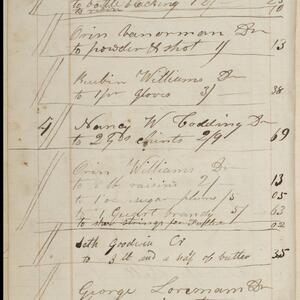 to bottle blacking 1/ 25
to resin 10
Orin Vanorman Dr
to powder & shot 1/ 13
Rubin Williams Dr
to 1/pr gloves 3/ 38
4 Nancy W Codding Dr
to 2 yds chints 2/9 69
Orin Williams Dr
to lb raisins 13
to 1 oz sugar plums /5 05
to 1 Quart brandy 5/ 63
to shoe strings for 02
Seth Goodwin Cr
to 3 lb and a half of butter 35
George Loremam Dr